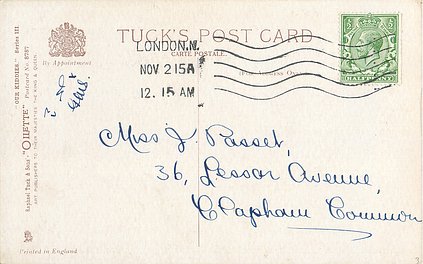 TUCK'S POST CARD
CARTE POSTALE
By Appointment
(For Address Only)
LONDON. N.
NOV 2 15A
12. 15 AM
HALFPENNY
Raphael Tuck & Sons' "OILETTE" "OUR KIDDIES." Series III
Postcard No. 8767
ART PUBLISHERS TO THEIR MAJESTIES THE KING & QUEEN
Miss J. Passet,
36, Lessar Avenue,
Clapham Common
Printed in England